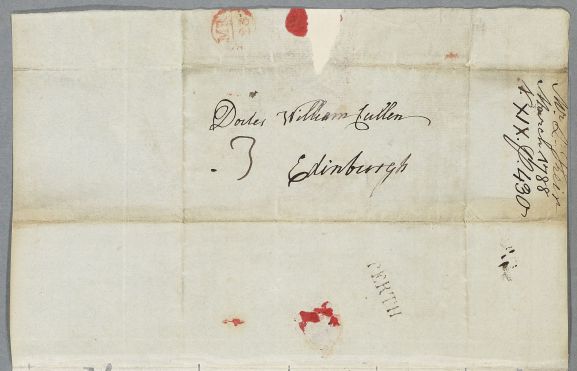 MR
23
Docter William Cullen
3
Edinburgh
PERTH
March 1788
XIX. P. 430